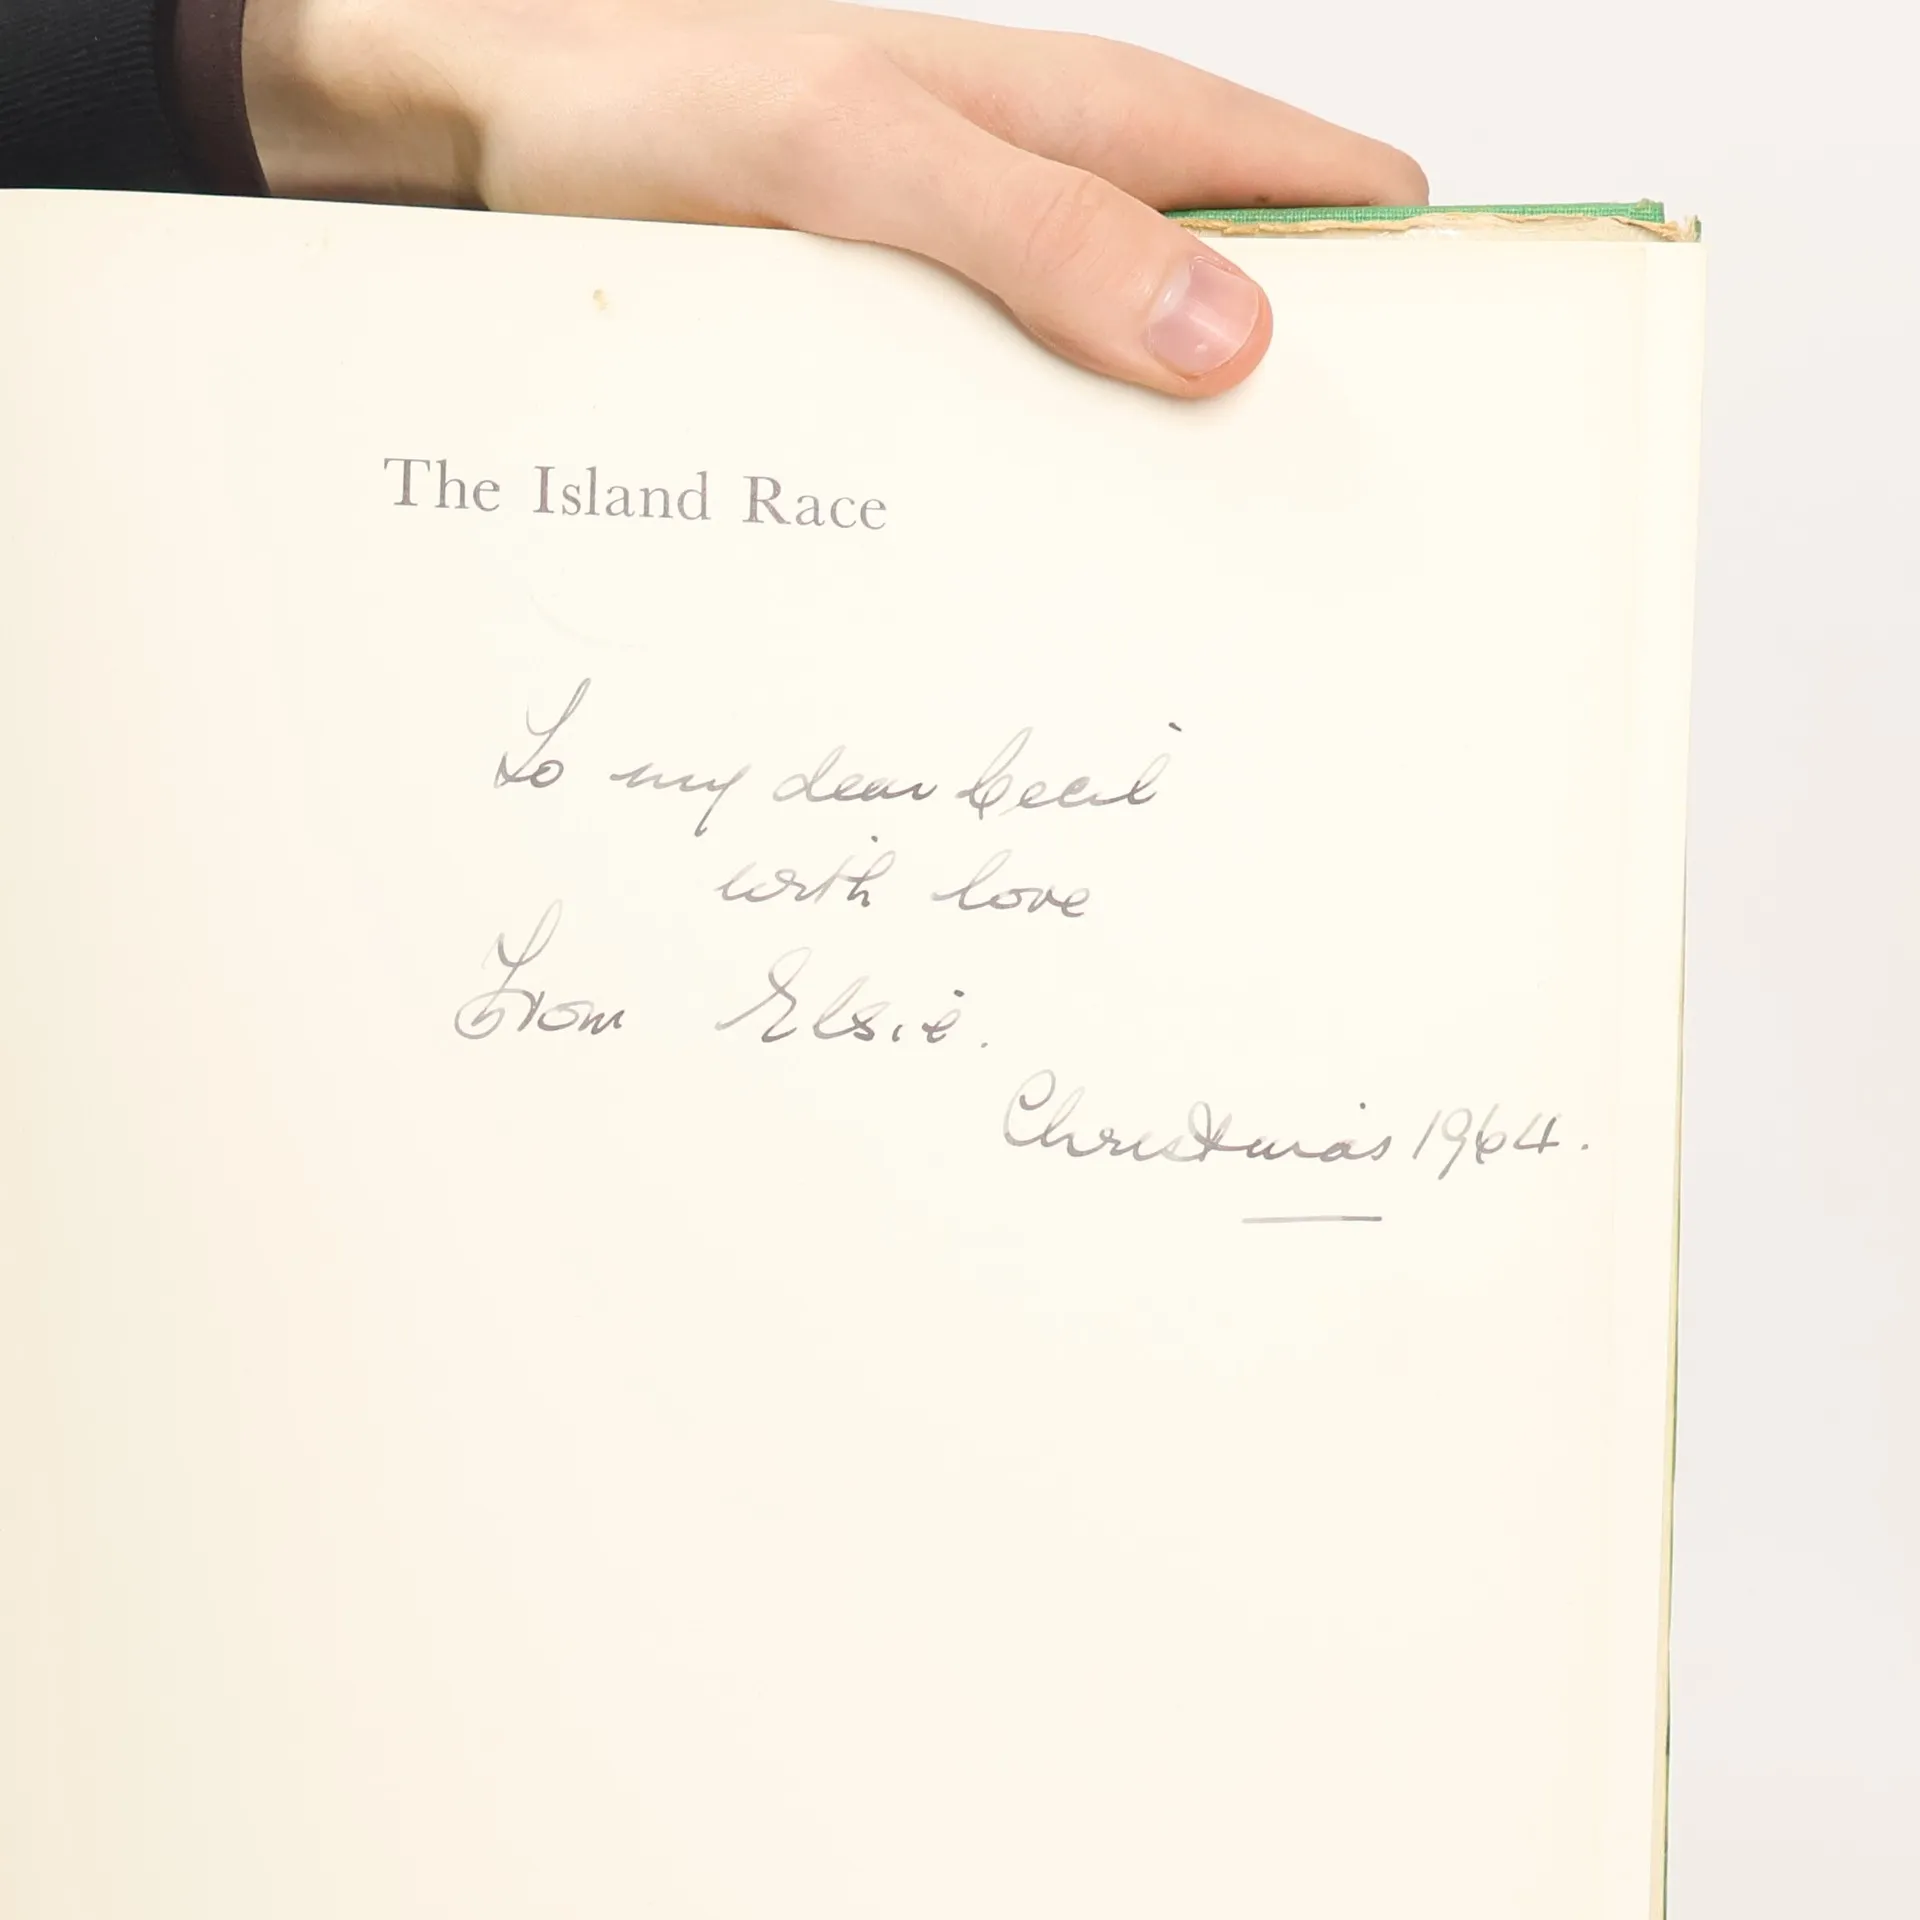 The Island Race
To my dear Cecil
with love
From Elsie.
Christmas 1964.